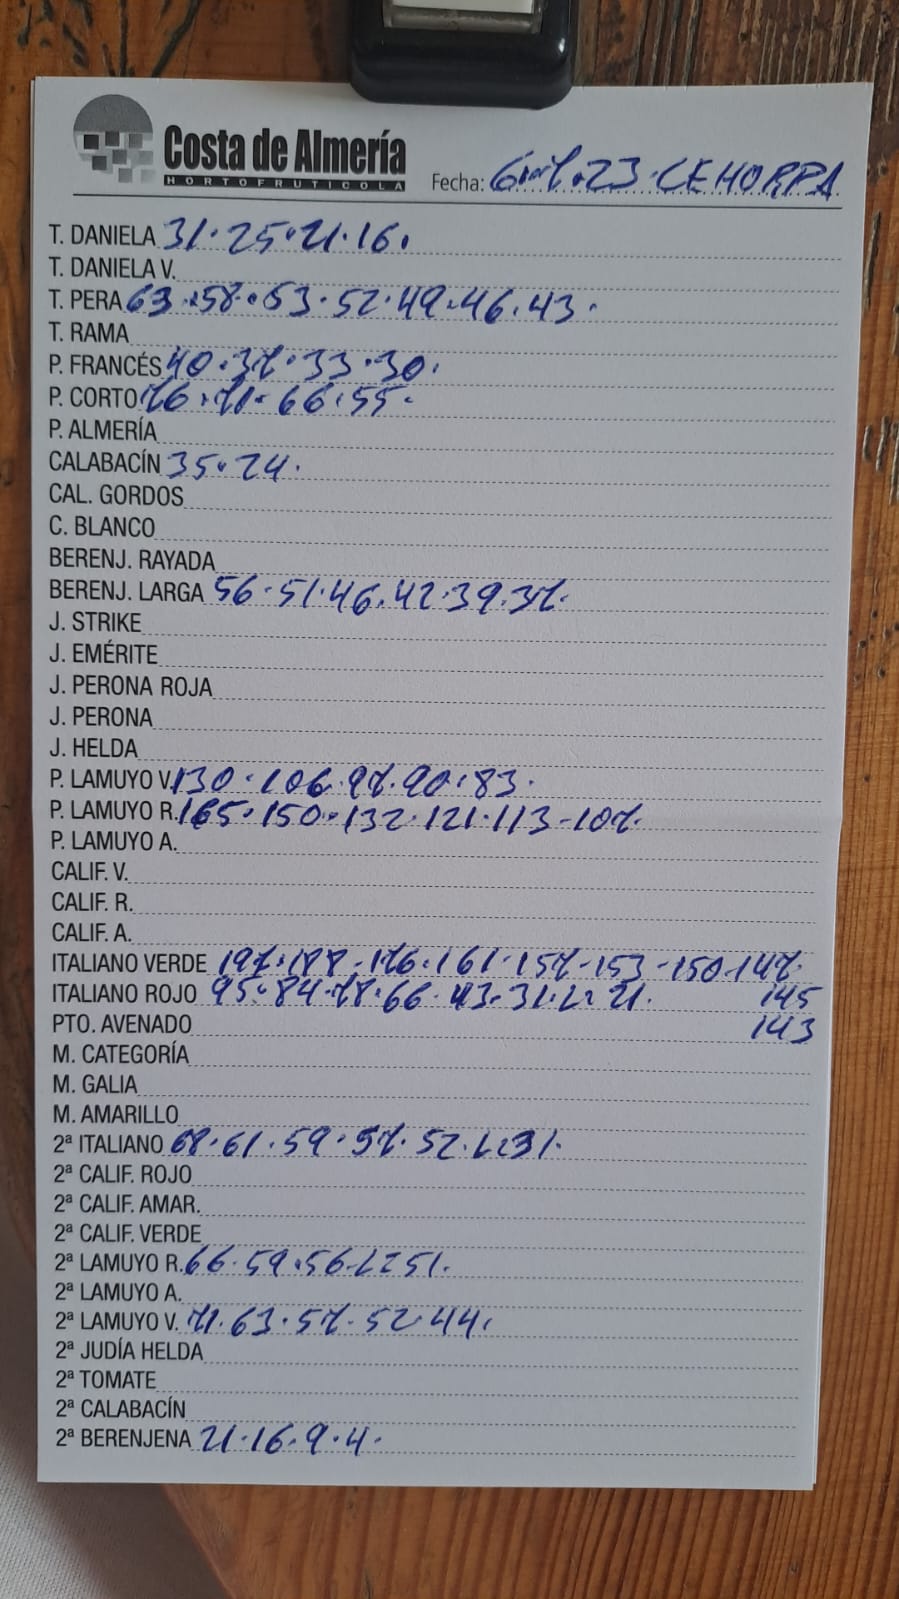 Costa de Almería
HORTOFRUTICOLA
Fecha: 6·7·23·CEHORPA
T. DANIELA 31·25·21·16.
T. DANIELA V.
T. PERA 63·58·53·52·49·46.43.
T. RAMA
P. FRANCÉS 40·37·33·30.
P. CORTO 76·71·66·55.
P. ALMERÍA
CALABACÍN 35·24.
CAL. GORDOS
C. BLANCO
BERENJ. RAYADA
BERENJ. LARGA 56·51·46.42·39.37.
J. STRIKE
J. EMÉRITE
J. PERONA ROJA
J. PERONA
J. HELDA
P. LAMUYO V. 130·106.97.90·83.
P. LAMUYO R. 165·150·132·121·113-107.
P. LAMUYO A.
CALIF. V.
CALIF. R.
CALIF. A.
ITALIANO VERDE 197·188-176·161-157-153-150-147.
ITALIANO ROJO 95·84·78·66·43·31. 21. 145
PTO. AVENADO 143
M. CATEGORÍA
M. GALIA
M. AMARILLO
2ª ITALIANO 68·61·59·57·52. 31.
2ª CALIF. ROJO
2ª CALIF. AMAR.
2ª CALIF. VERDE
2ª LAMUYO R. 66·59·56 51.
2ª LAMUYO A.
2ª LAMUYO V. 71·63·57·52·44.
2ª JUDÍA HELDA
2ª TOMATE
2ª CALABACÍN
2ª BERENJENA 21·16.9·4.